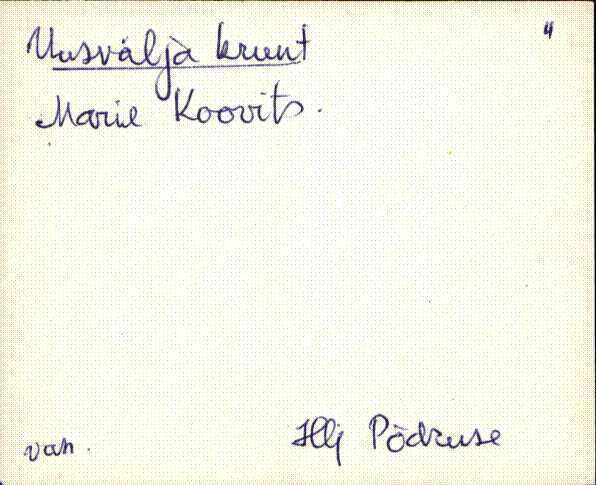 Uusvälja krunt "
Marie Koovits.
van. Hlj Põdruse